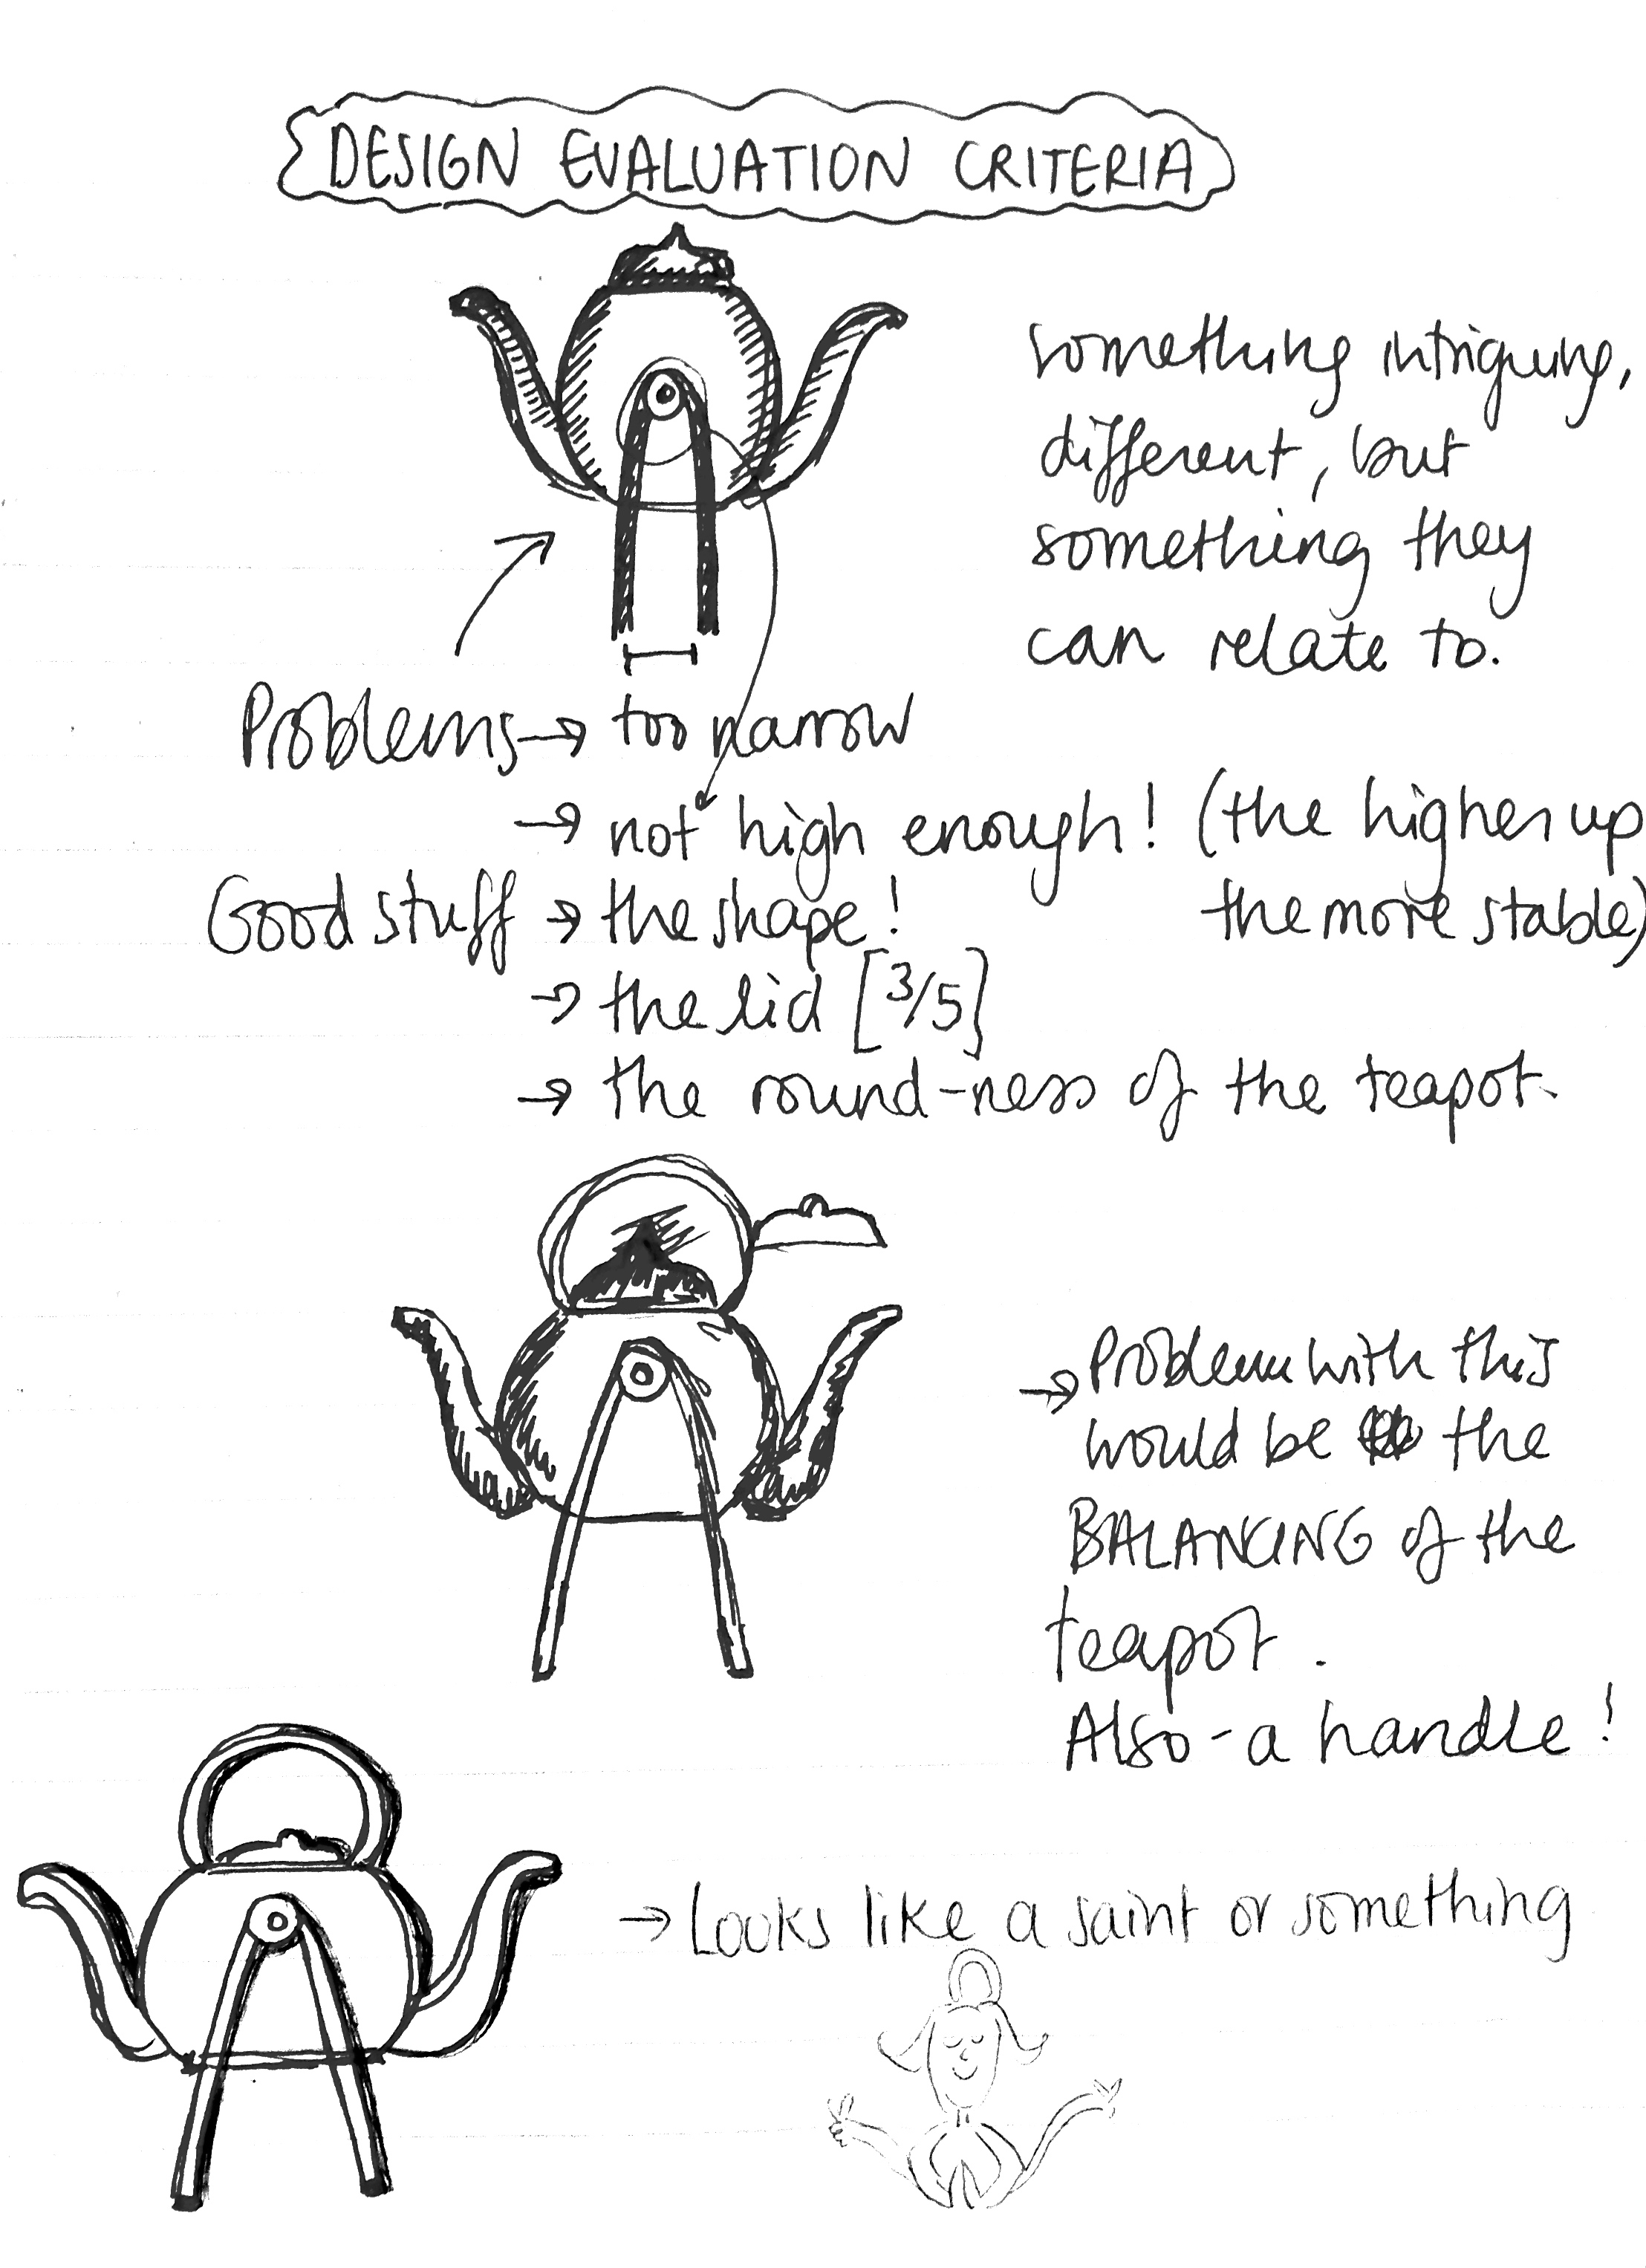 DESIGN EVALUATION CRITERIA
something intriguing,
different, but
something they
can relate to.
Problems → too narrow
→ not high enough! (the higher up
the more stable)
Good stuff → the shape!
→ the lid [3/5]
→ the round-ness of the teapot.
→ Problem with this
would be the
BALANCING of the
teapot.
Also - a handle!
→ Looks like a saint or something